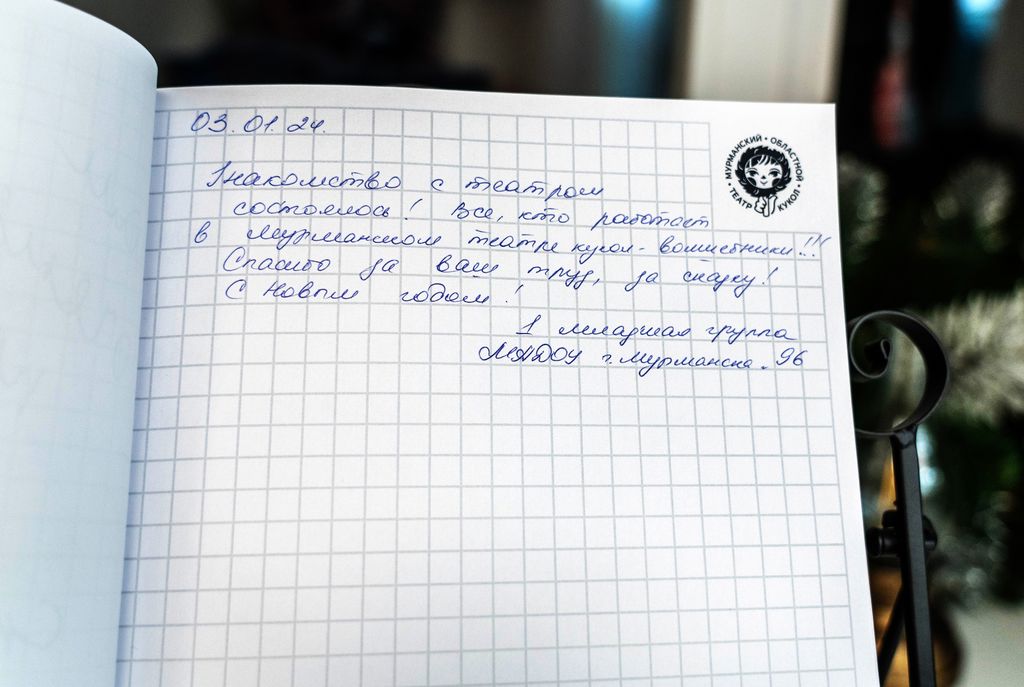 03.01.24.
МУРМАНСКИЙ • ОБЛАСТНОЙ • ТЕАТР КУКОЛ •
Знакомство с театром
состоялось! Все, кто работает
в Мурманском театре кукол - волшебники!!!
Спасибо за ваш труд, за сказку!
С Новым годом!
1 младшая группа
МАДОУ г. Мурманска. 96